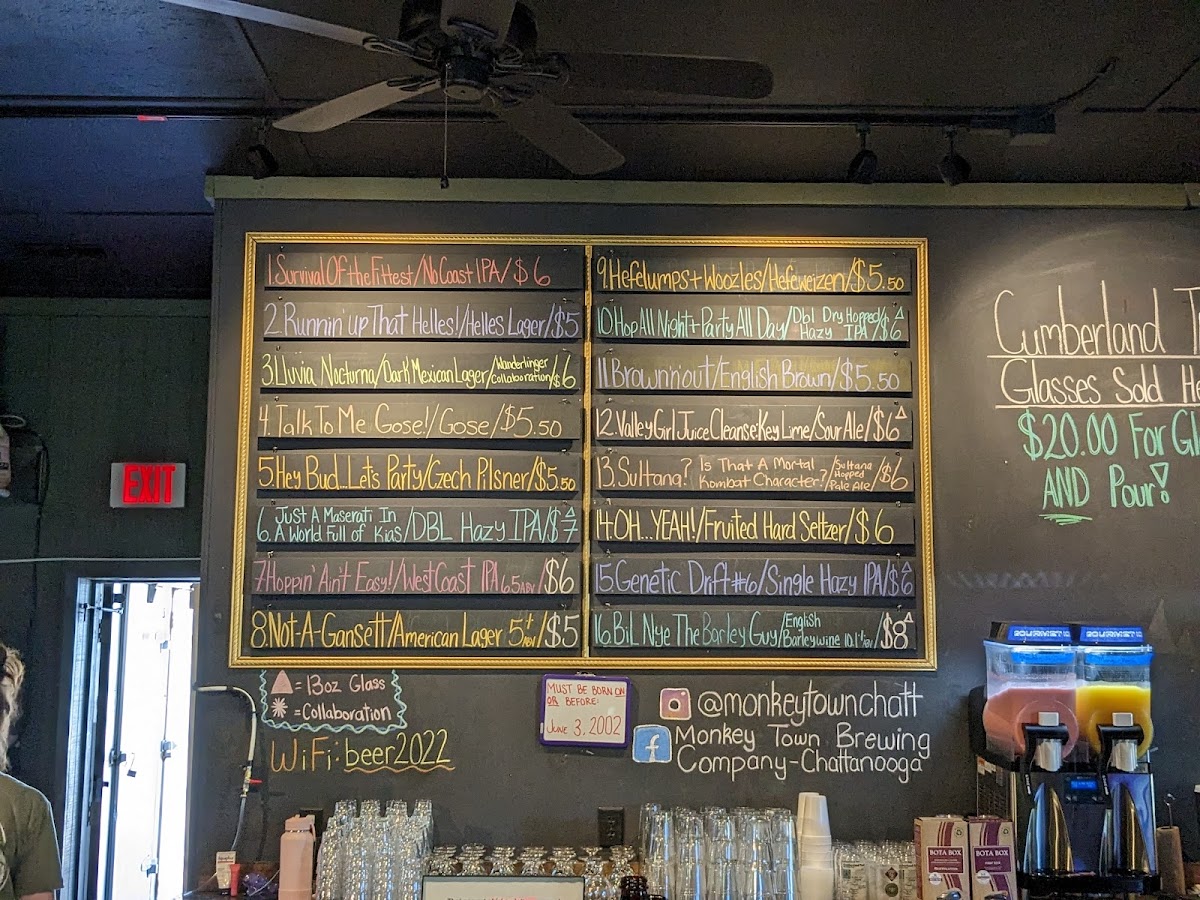 1. Survival Of the Fittest/No Coast IPA/$6
2. Runnin' up That Helles!/Helles Lager/$5
3. Lluvia Nocturna/Dark Mexican Lager/Wanderlinger Collaboration/$6
4. Talk To Me Gose!/Gose/$5.50
5. Hey Bud...Let's Party/Czech Pilsner/$5.50
6. Just A Maserati In A World Full of Kias/DBL Hazy IPA/$7
7. Hoppin' Ain't Easy!/West Coast IPA 6.5 ABV/$6
8. Not-A-Gansett/American Lager 5+ ABV/$5
9. Hefelumps + Woozles/Hefeweizen/$5.50
10. Hop All Night + Party All Day/Dbl Dry Hopped Hazy IPA/$6
11. Brown'n'out/English Brown/$5.50
12. Valley Girl Juice Cleanse: Key Lime/Sour Ale/$6
13. Sultana? Is That A Mortal Kombat Character?/Sultana Hopped Pale Ale/$6
14. OH...YEAH!/Fruited Hard Seltzer/$6
15. Genetic Drift #6/Single Hazy IPA/$6
16. Bil Nye The Barley Guy/English Barleywine 10.1% ABV/$8
Cumberland
Glasses Sold
$20.00 For
AND Pour!
EXIT
= 13oz Glass
= Collaboration
WiFi: beer2022
MUST BE BORN ON
OR BEFORE:
JUNE 3, 2002
@monkeytownchatt
Monkey Town Brewing
Company-Chattanooga
GOURMET
GOURMET
BOTA BOX
BOTA BOX